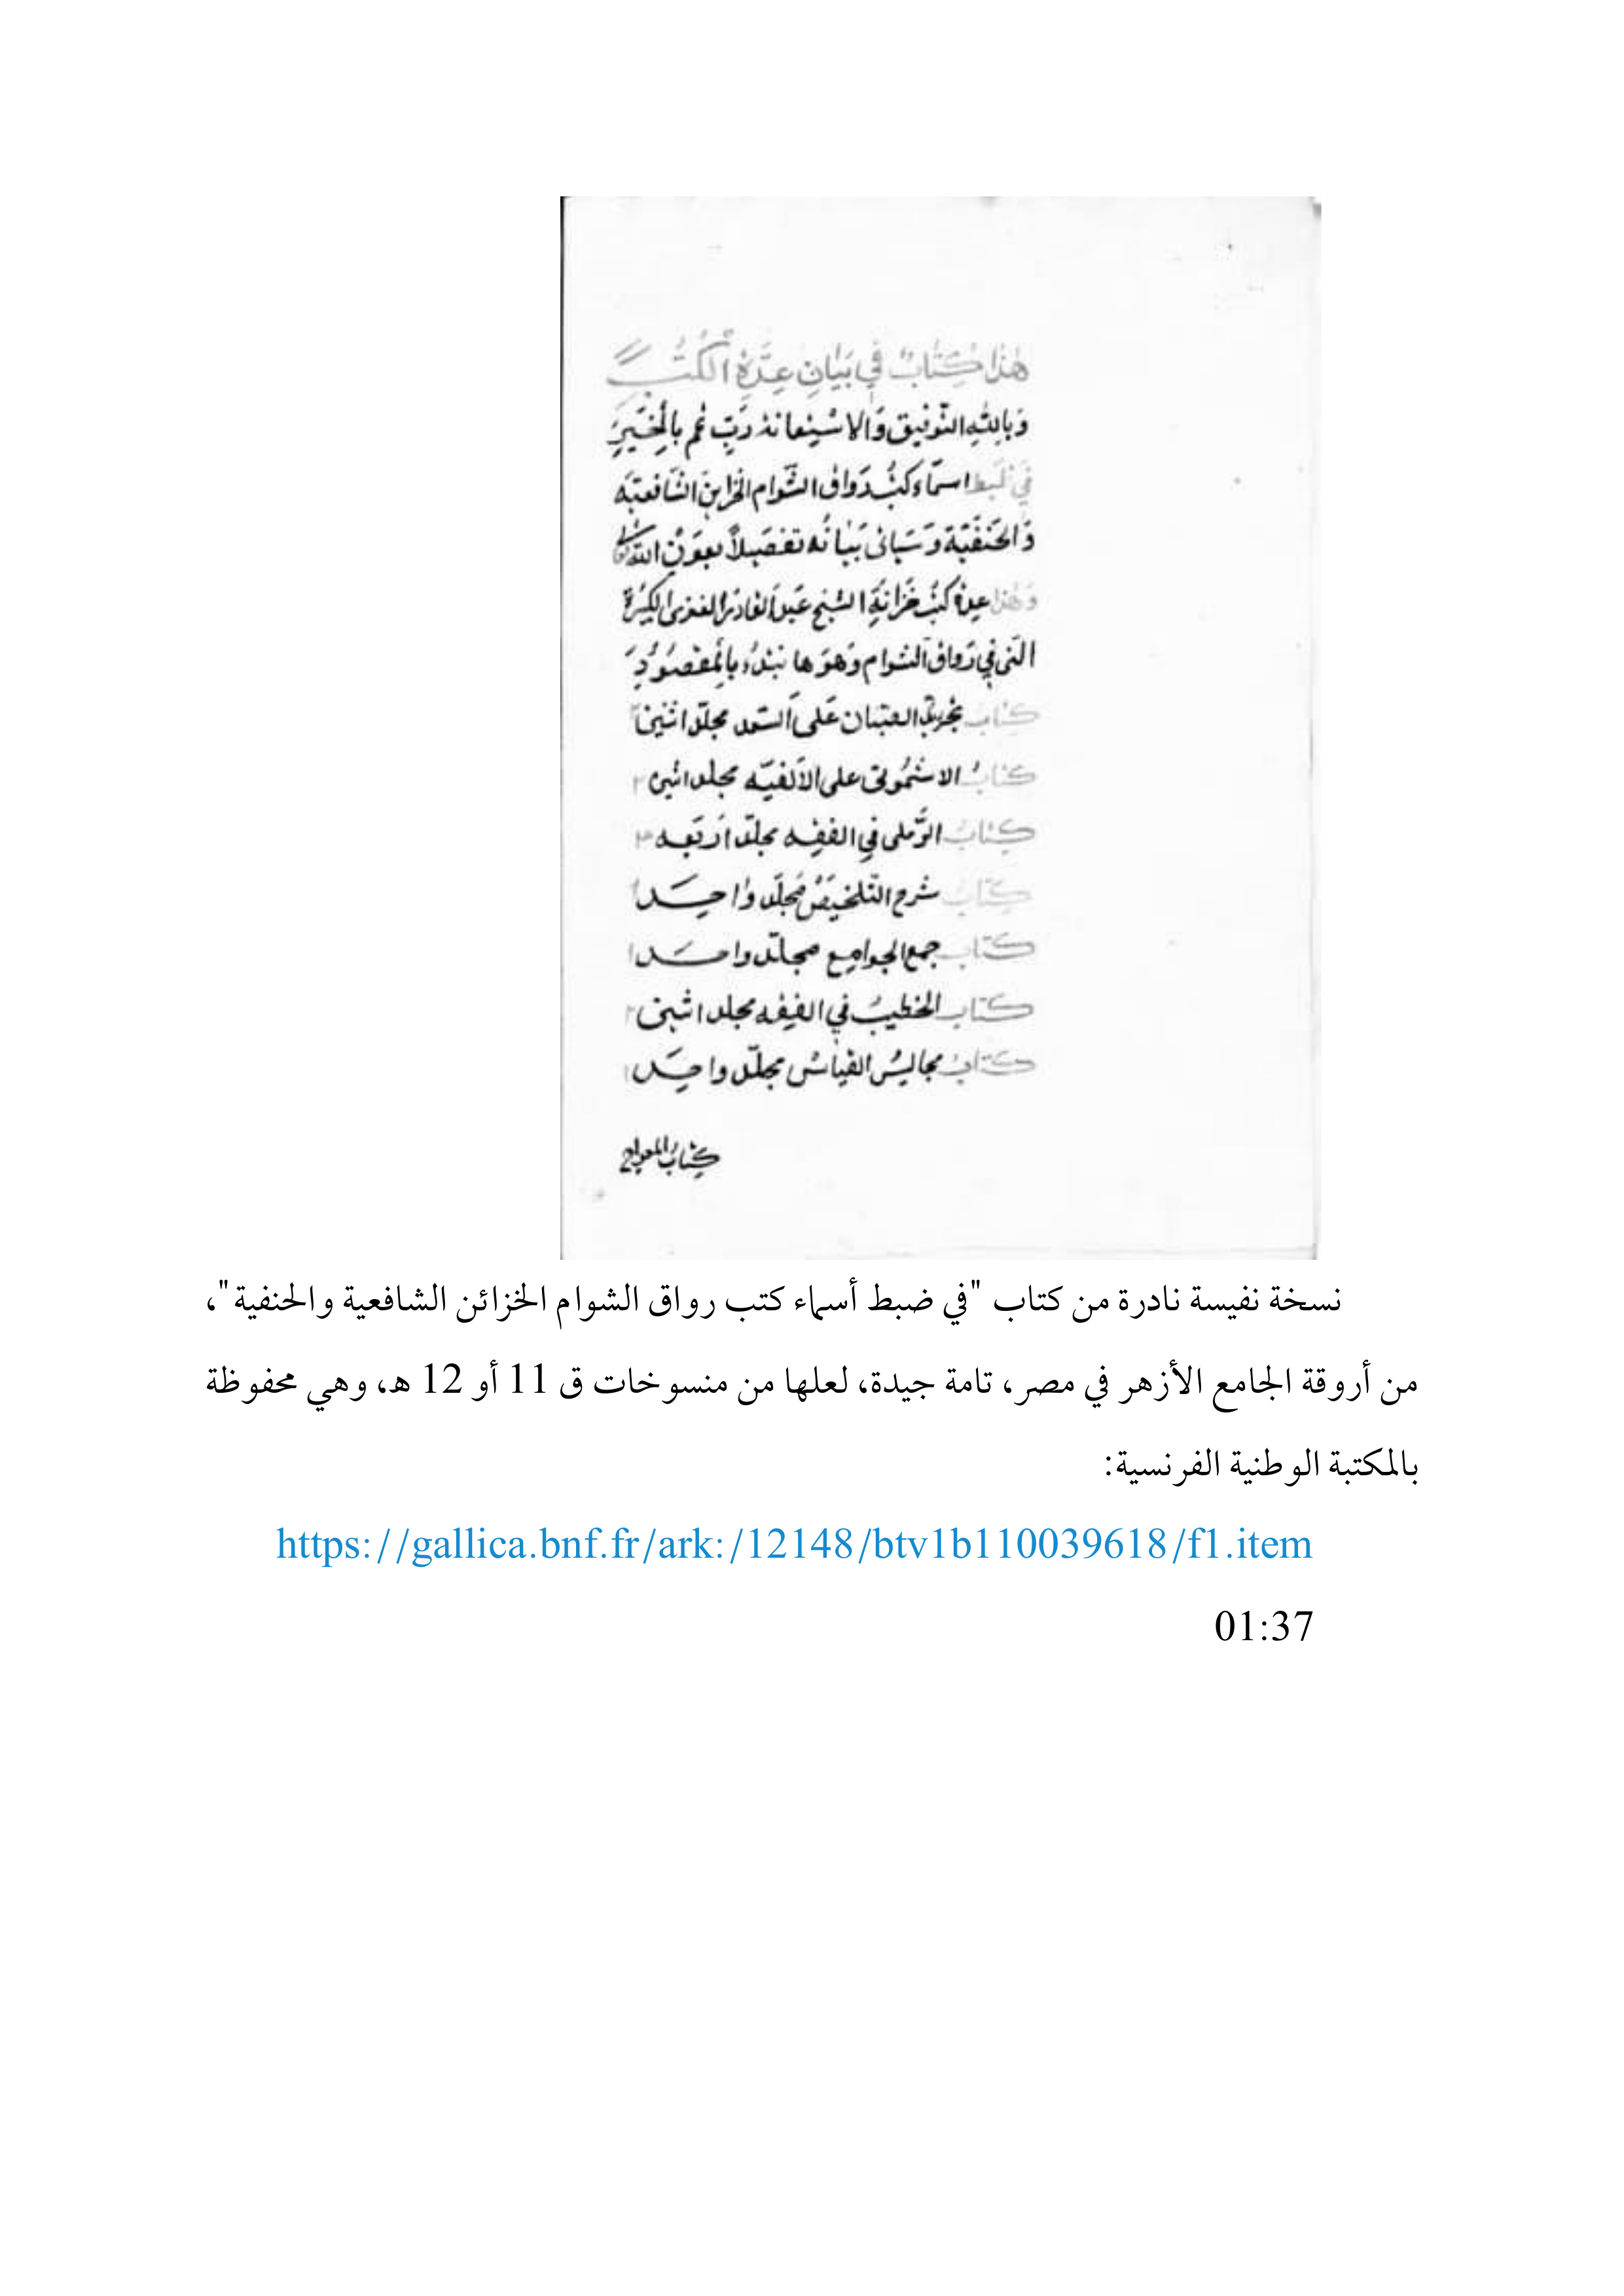 هٰذا كِتابٌ في بَيانِ عِدَّةِ الكُتُب
وَبِاللهِ التَّوفيق وَالاسْتِعانة رَبِّ تمم بِالْخَيْرِ
في ضبط اسمآء كتب رَواق الشَّوام الخزاين الشافعيّه
وَالحَنَفيَّة وَسَياتى بَيانُه تفصيلاً بعون الله
وَهٰذا عِدة كتب خَزانَةِ الشيخ عَبد القادر الغزى الكبيرة
التى في رَواق الشوام وَهوَ ها نبتدء بالمقصُودِ
كتاب على السعد مجلّد اثنين ٢
كتابُ الاشمُونى على الألفيّه مجلد اثنين ٢
كتابُ الرَّملى في الفقه مجلّد اَربَعه
كتاب شرح التلخيص مُجلّد وٰاحِد ١
كتاب جمع الجوامِع مجلّد واحد ١
كتاب الخطيبُ في الفِقه مجلد اثنين ٢
كتابُ مجالِسُ مجلّد واحِد ١
كتابُ المعراج
نسخة نفيسة نادرة من كتاب "في ضبط أسماء كتب رواق الشوام الخزائن الشافعية والحنفية"،
من أروقة الجامع الأزهر في مصر، تامة جيدة، لعلها من منسوخات ق 11 أو 12 هـ، وهي محفوظة
بالمكتبة الوطنية الفرنسية:
https://gallica.bnf.fr/ark:/12148/btv1b110039618/f1.item
01:37